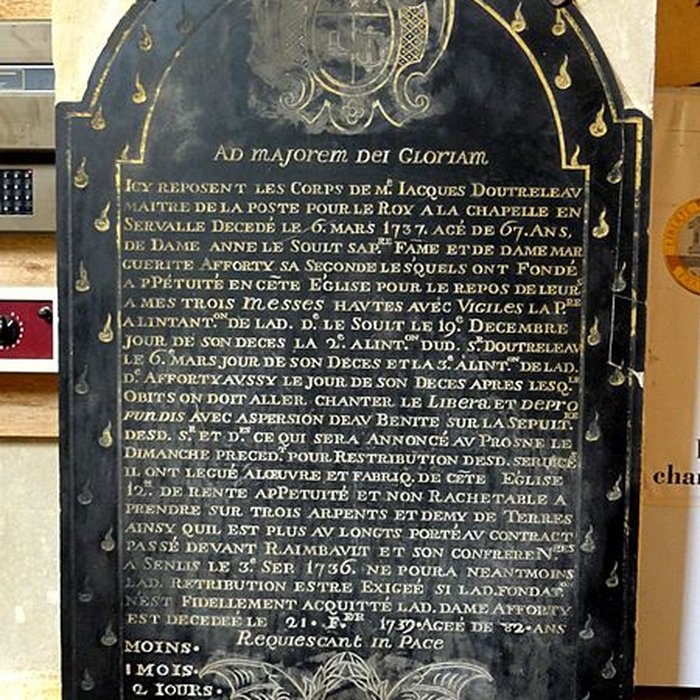 AD MAJOREM DEI GLORIAM
ICY REPOSENT LES CORPS DE Mᴿ. IACQUES DOUTRELEAV
MAITRE DE LA POSTE POUR LE ROY A LA CHAPELLE EN
SERVALLE DECEDÉ LE 6. MARS 1737. AGÉ DE 67. ANS,
DE DAME ANNE LE SOULT SA Pᴿᴱ FAME ET DE DAME MAR
GUERITE AFFORTY SA SEGONDE LESQUELS ONT FONDÉ
A PPÉTUITÉ EN CETE EGLISE POUR LE REPOS DE LEURS
AMES TROIS MESSES HAVTES AVEC VIGILES LA Pᴿᴱ
A LINTANTᴼᴺ DE LAD. Dᴱ LE SOULT LE 19ᴱ DECEMBRE
JOUR DE SON DECES LA 2ᴱ A LINTᴼᴺ DUD. Sᴿ DOUTRELEAV
LE 6ᴱ MARS JOUR DE SON DECES ET LA 3ᴱ A LINTᴼᴺ DE LAD.
Dᴱ AFFORTY AVSSY LE JOUR DE SON DECES APRES LESQᴸˢ
OBITS ON DOIT ALLER CHANTER LE LIBERA ET DEPRO
FUNDIS AVEC ASPERSION DEAV BENITE SUR LA SEPULTᴿᴱ
DESD. Sᴿ ET Dᴱˢ CE QUI SERA ANNONCÉ AV PROSNE LE
DIMANCHE PRECEDᵀ POUR RESTRIBUTION DESD. SERVICES
IL ONT LEGUÉ A LŒUVRE ET FABRIQ. DE CETE EGLISE
12ᴴ DE RENTE APPETUITÉ ET NON RACHETABLE A
PRENDRE SUR TROIS ARPENTS ET DEMY DE TERRES
AINSY QUIL EST PLUS AV LONGTS PORTÉ AV CONTRACT
PASSÉ DEVANT RAIMBAVLT ET SON CONFRERE Nᴿᴱˢ
A SENLIS LE 3ᴱ SEP. 1736. NE POURA NEANTMOINS
LAD. RETRIBUTION ESTRE EXIGEÉ SI LAD. FONDATᴼᴺ
NEST FIDELLEMENT ACQUITTÉ LAD. DAME AFFORTY
EST DECEDEÉ LE 21. Fᴱᴿ 1739. AGEÉ DE 82. ANS
REQUIESCANT IN PACE
MOINS.
1 MOIS.
2 IOURS.
char